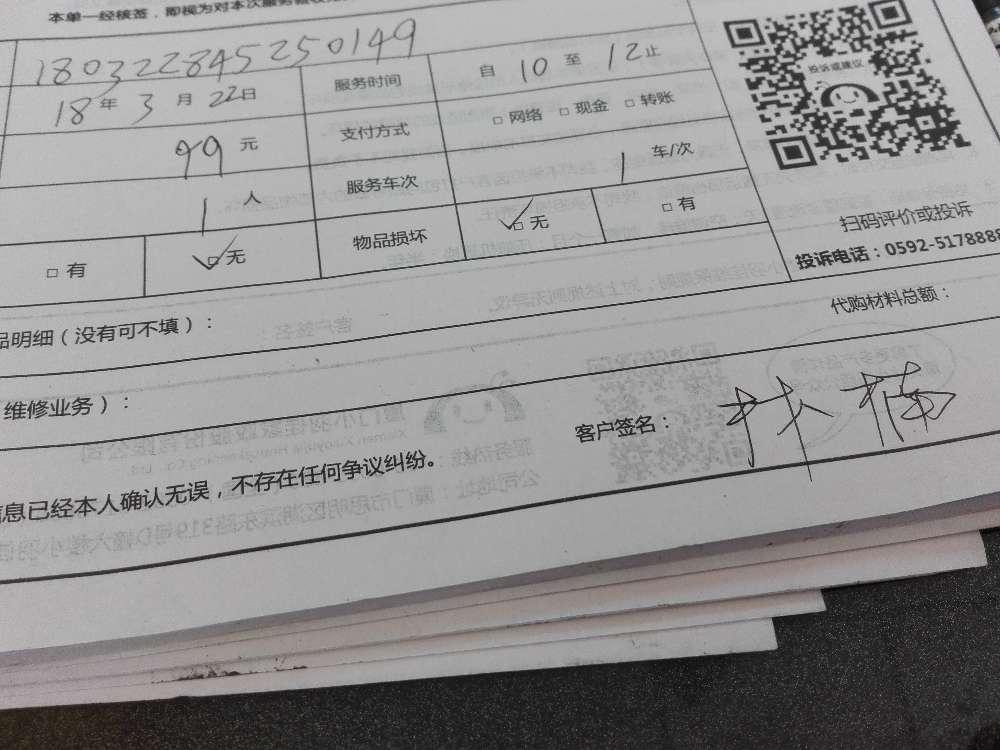 本单一经核签，即视为对本次服务验收
180322845250149
服务时间 自 10 至 12 止
18 年 3 月 22 日
支付方式 □ 网络 □ 现金 □ 转账
99 元
服务车次 1 车/次
1 人
□ 有 ✓□无 物品损坏 ✓□无 □ 有
投诉或建议
扫码评价或投诉
投诉电话：0592-5178888
品明细（没有可不填）：
代购材料总额：
维修业务）：
客户签名：林楠
信息已经本人确认无误，不存在任何争议纠纷。